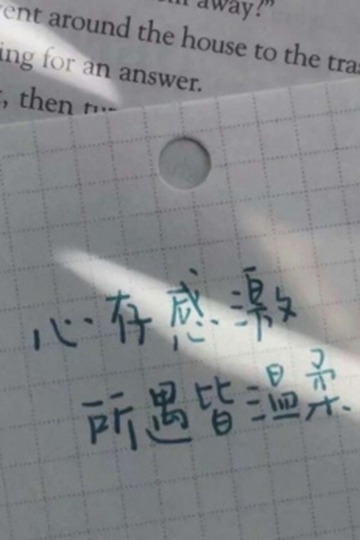 away?"
ent around the house to the tra
ing for an answer.
, then
心存感激
所遇皆温柔.